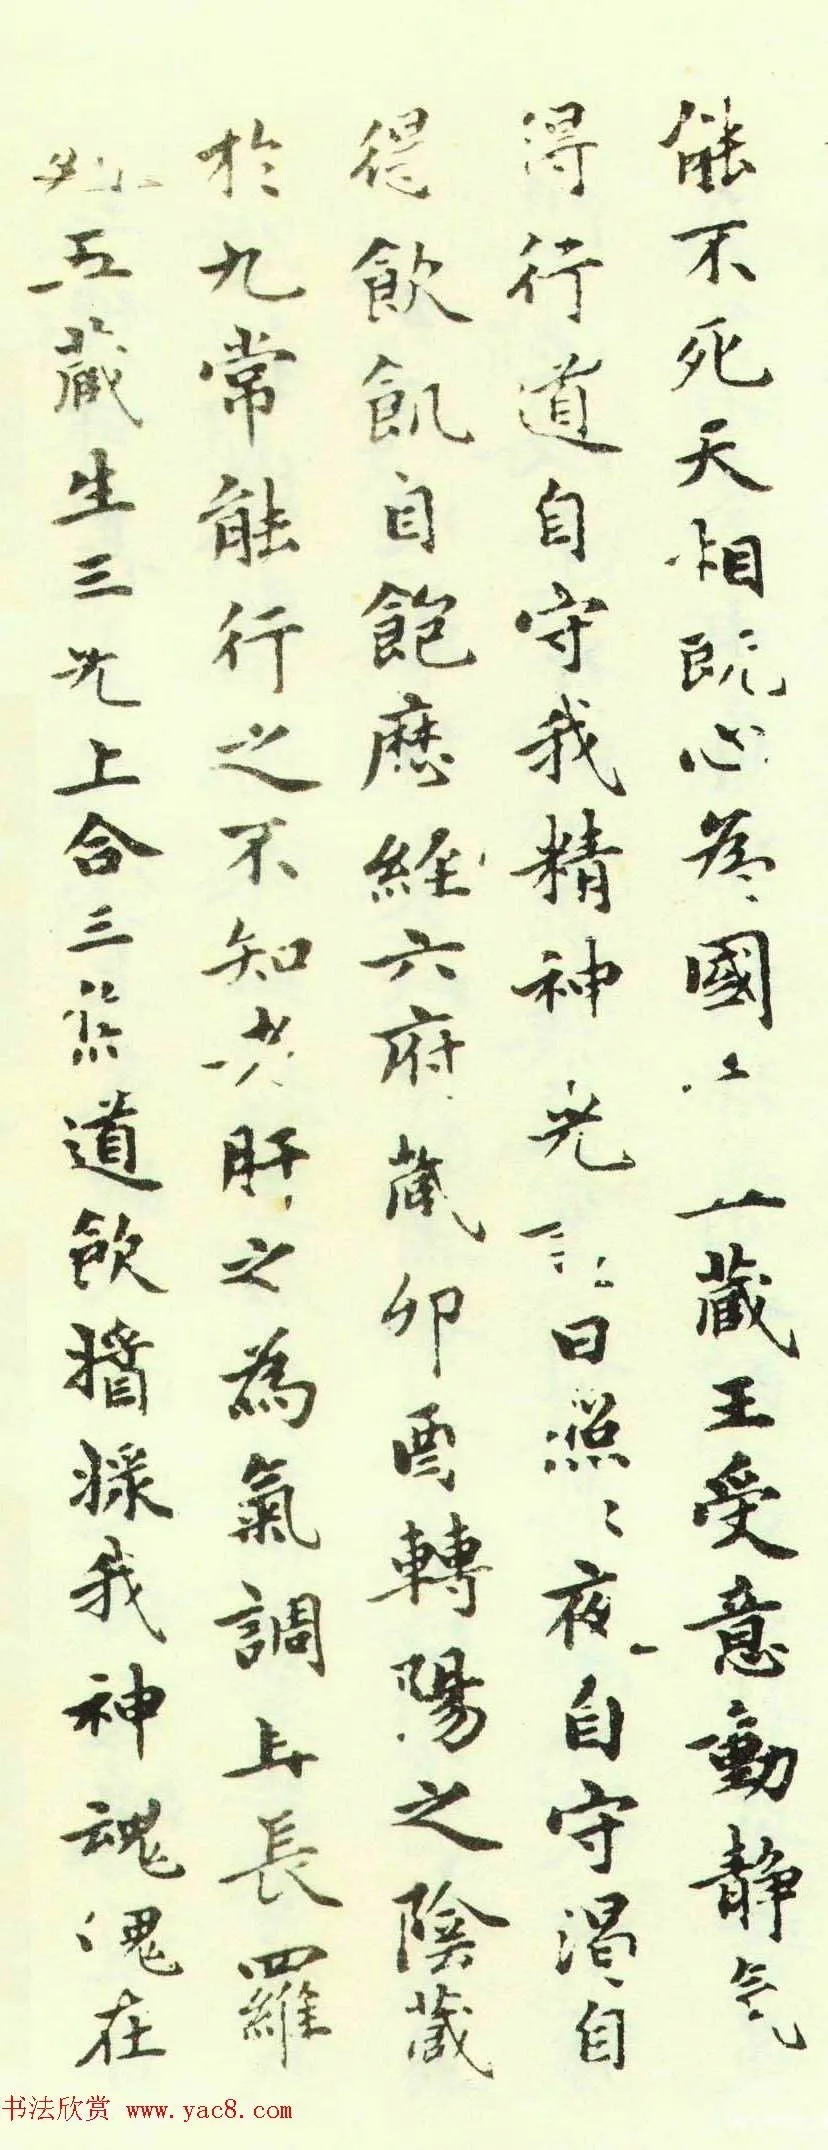 能不死天相既心為國 一藏王受意動静气
得行道自守我精神光 日照〻夜自守渴自
得飲飢自飽歷經六府藏卯酉轉陽之陰藏
於九常能行之不知老肝之為氣調且長羅
五藏生三光上合三焦道飲漿我神魂魄在
书法欣赏 www.yac8.com